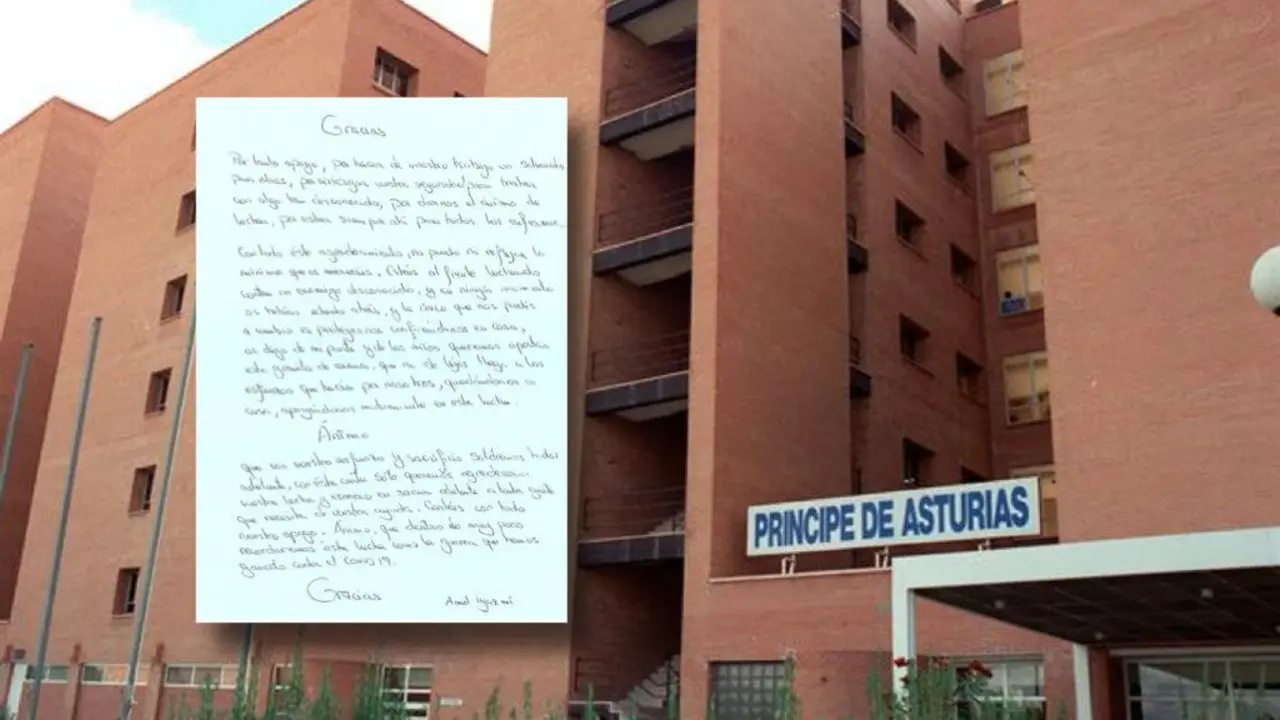 Gracias
Por tanto apoyo, por hacer de vuestro trabajo un salvavidas
para otros, por arriesgar vuestra seguridad para tratar
con algo tan desconocido, por darnos el ánimo de
luchar, por estar siempre ahí para todos los enfermos.
Con todo éste agradecimiento, no puedo ni reflejar lo
mínimo que os merecéis. Estáis al frente luchando
contra un enemigo desconocido, y en ningún momento
os habéis echado atrás, y lo único que nos pedís
a cambio es protegernos confinándonos en casa,
os dejo de mi parte y de los míos queremos aportar
este granito de arena, que ni de lejos llega a los
esfuerzos que hacéis por nosotros, quedándonos en
casa, apoyándonos mutuamente en esta lucha.
Ánimo
que con vuestro esfuerzo y sacrificio saldremos todos
adelante, con ésta carta sólo queremos agradeceros
vuestra lucha y esmero en sacar adelante a toda gente
que necesita de vuestra ayuda. Contáis con todo
nuestro apoyo. Ánimo, que dentro de muy poco
recordaremos esta lucha como la guerra que hemos
ganado contra el Covid 19.
Gracias
PRINCIPE DE ASTURIAS